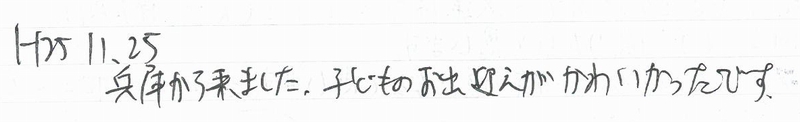 H25 11.25
兵庫から来ました。子どものお出迎えがかわいかったです。